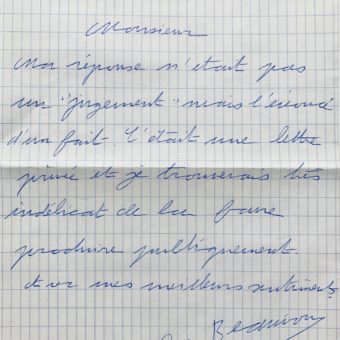 Monsieur
Ma réponse n'était pas
un "jugement" mais l'énoncé
d'un fait. C'était une lettre
privée et je trouverais très
indélicat de la faire
produire publiquement.
et ver mes meilleurs sentiments